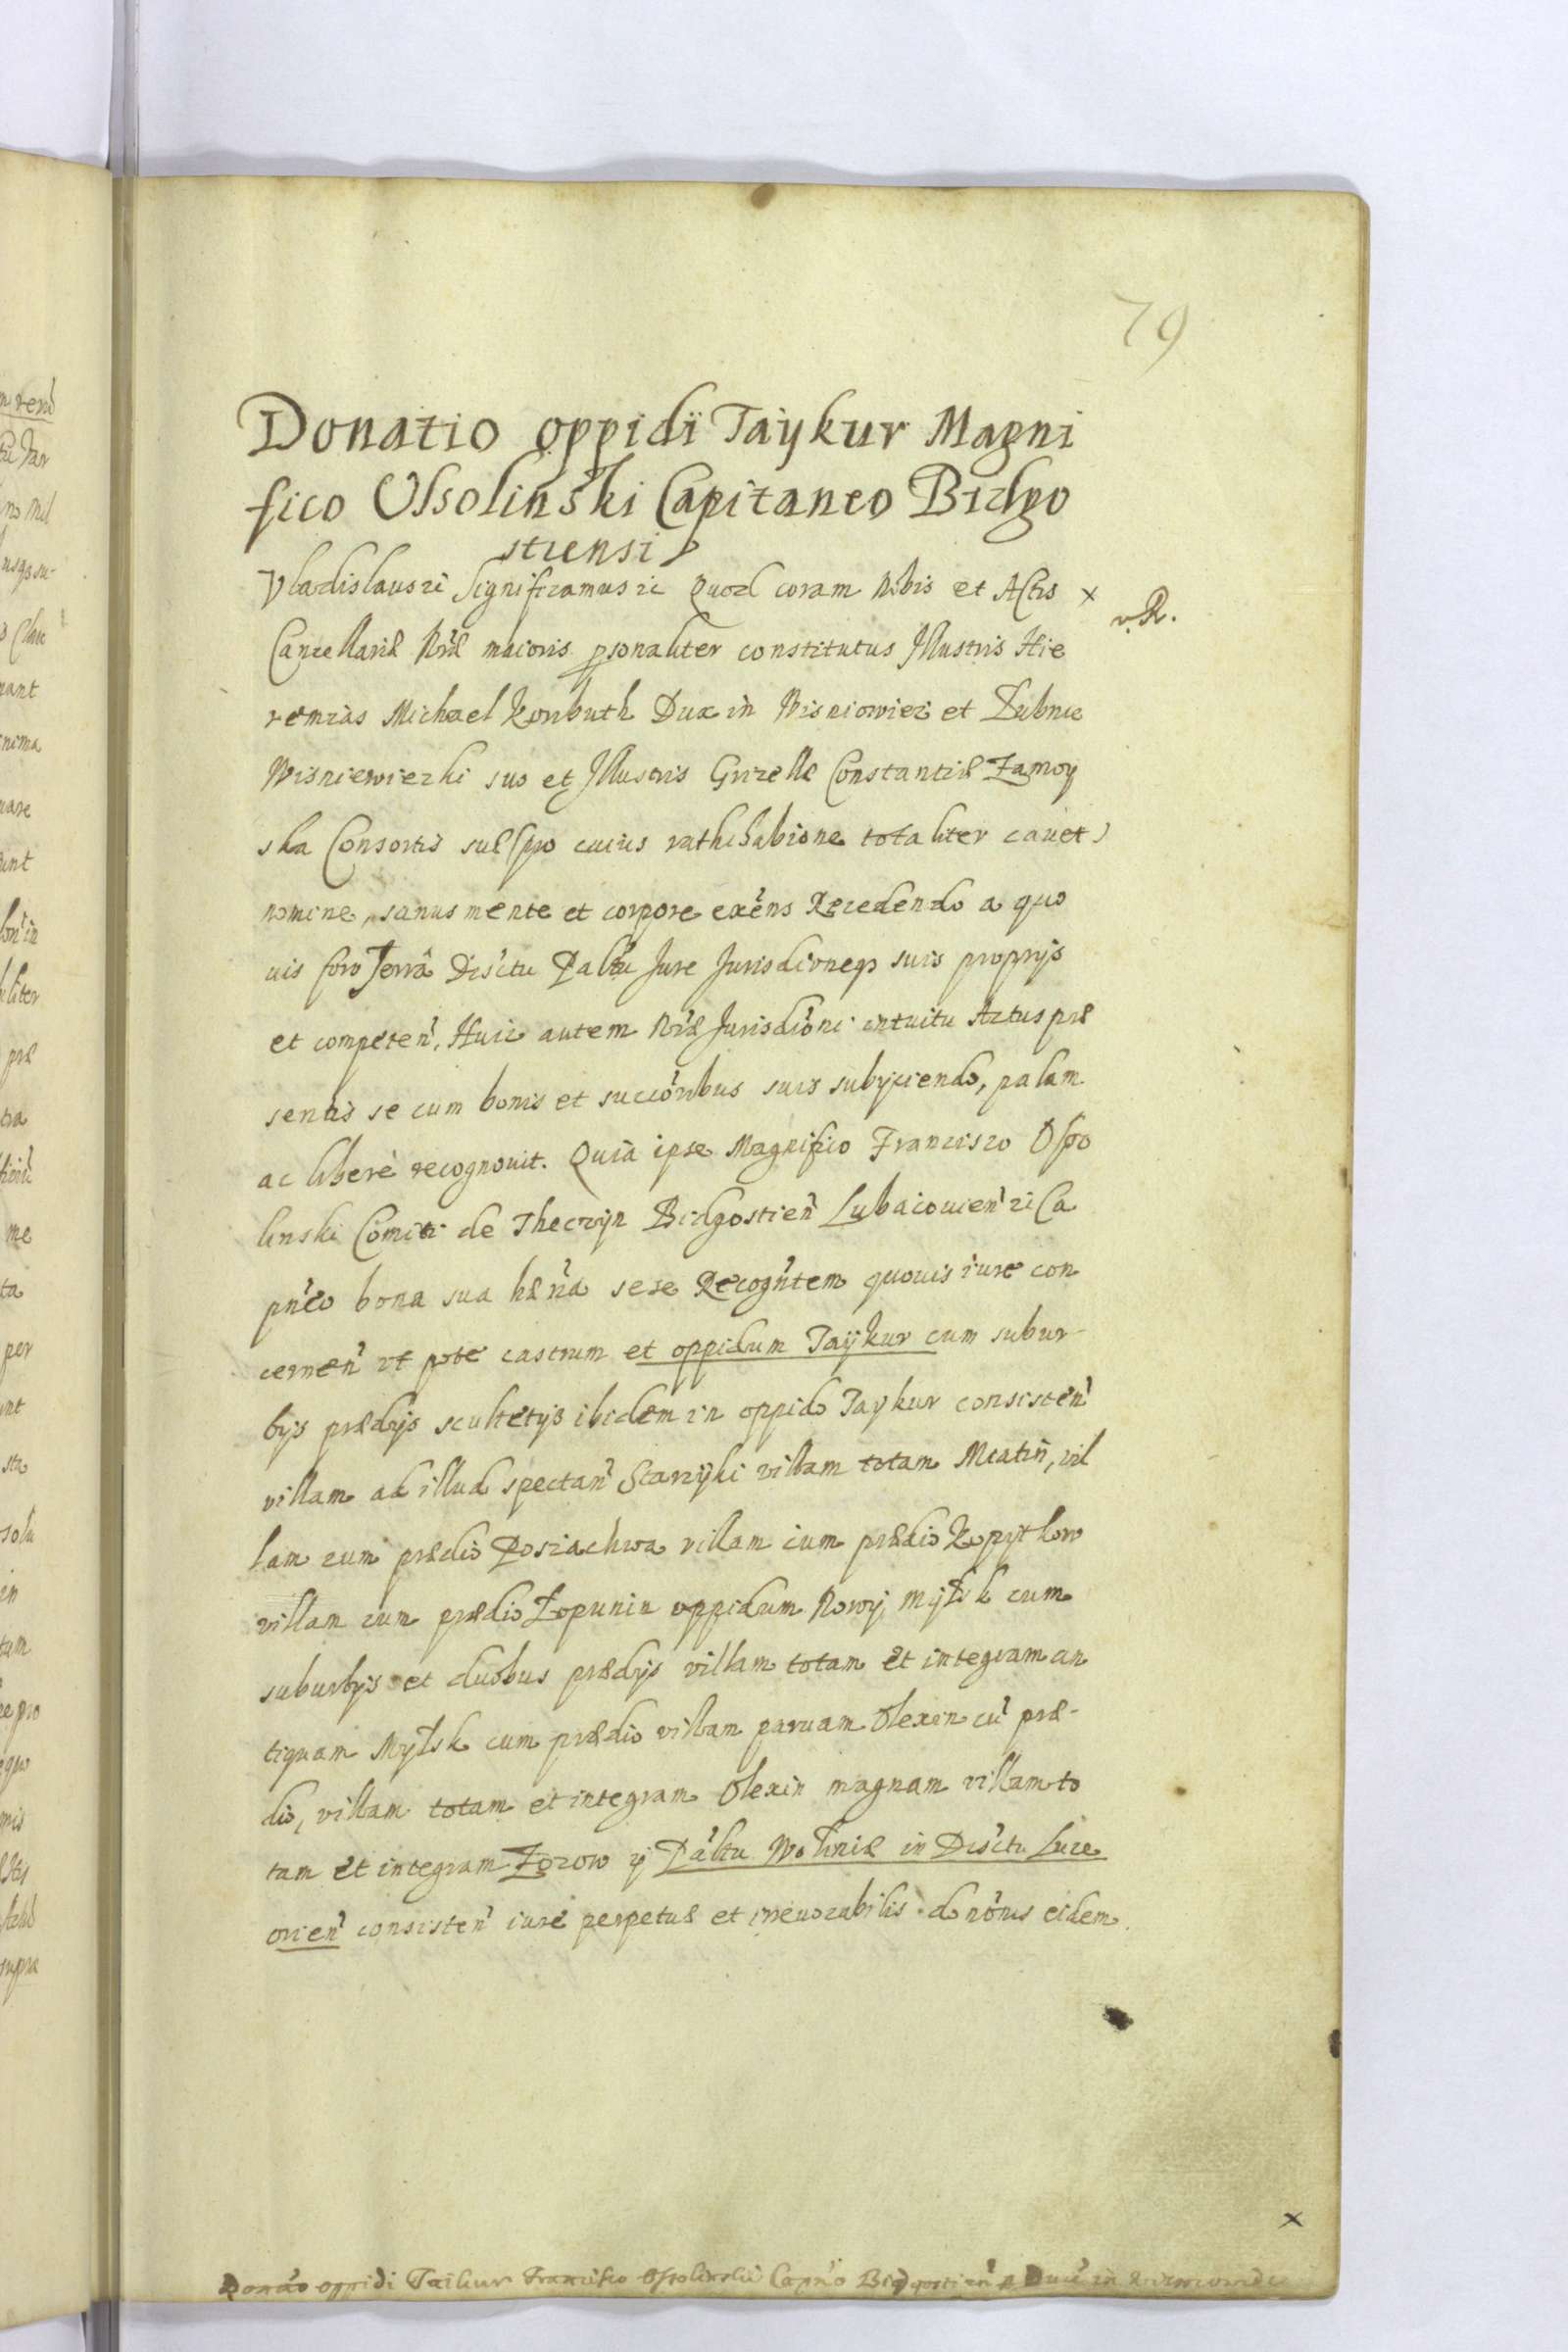 79
Donatio oppidi Taykur Magni
fico Ossolinski Capitaneo Bidgo
stiensi
Vladislaus zc Significamus zc Quod coram Nobis et Actis x
v. R.
Cancellariæ Nræ maioris psonaliter constitutus Illustris Hie
remias Michael Koributh Dux in Wisniowiec et Lubnie
Wisniewiezki suo et Illustris Grizellæ Constantiæ Zamoy
ska Consortis suæ (pro cuius rathihabione totaliter cauet)
nomine, sanus mente et corpore exēns Recedendo a quo
uis foro Terrā Disctu Paltu Jure Jurisdioneqз suis proprijs
et competen, Huic autem Nræ Jurisdioni intuitu Actus præ
sentis se cum bonis et succoribus suis subijciendo, palam
ac liberè recognouit. Quia ipse Magnifico Francisco Osso
linski Comiti de Theczyn Bidgostien Lubaiouien zc Ca
pneo bona sua hæna sese Recogntem quouis iure con
cernen ut pote castrum et oppidum Taykur cum subur-
bijs prædijs scultetijs ibidem in oppido Taykur consisten
villam ad illud spectan Starzyki villam totam Mcatin, vil
lam cum prædio Posiachwa villam cum prædio Kopytkow
villam cum prædio Zopunin oppidum Nowy Mylsk cum
suburbijs et duobus prædijs villam totam et integram an
tiquam Mylsk cum prædio villam paruam Olexin cu præ-
dio, villam totam et integram Olexin magnam villam to
tam et integram Zozow in Paltu Woliniæ in Disctu Luce
orien consisten iure perpetuæ et irreuocabilis donōnis eidem
x
Donāo oppidi Taikur Francisco Ossolinski Capnō Bidgostien p Ducē in